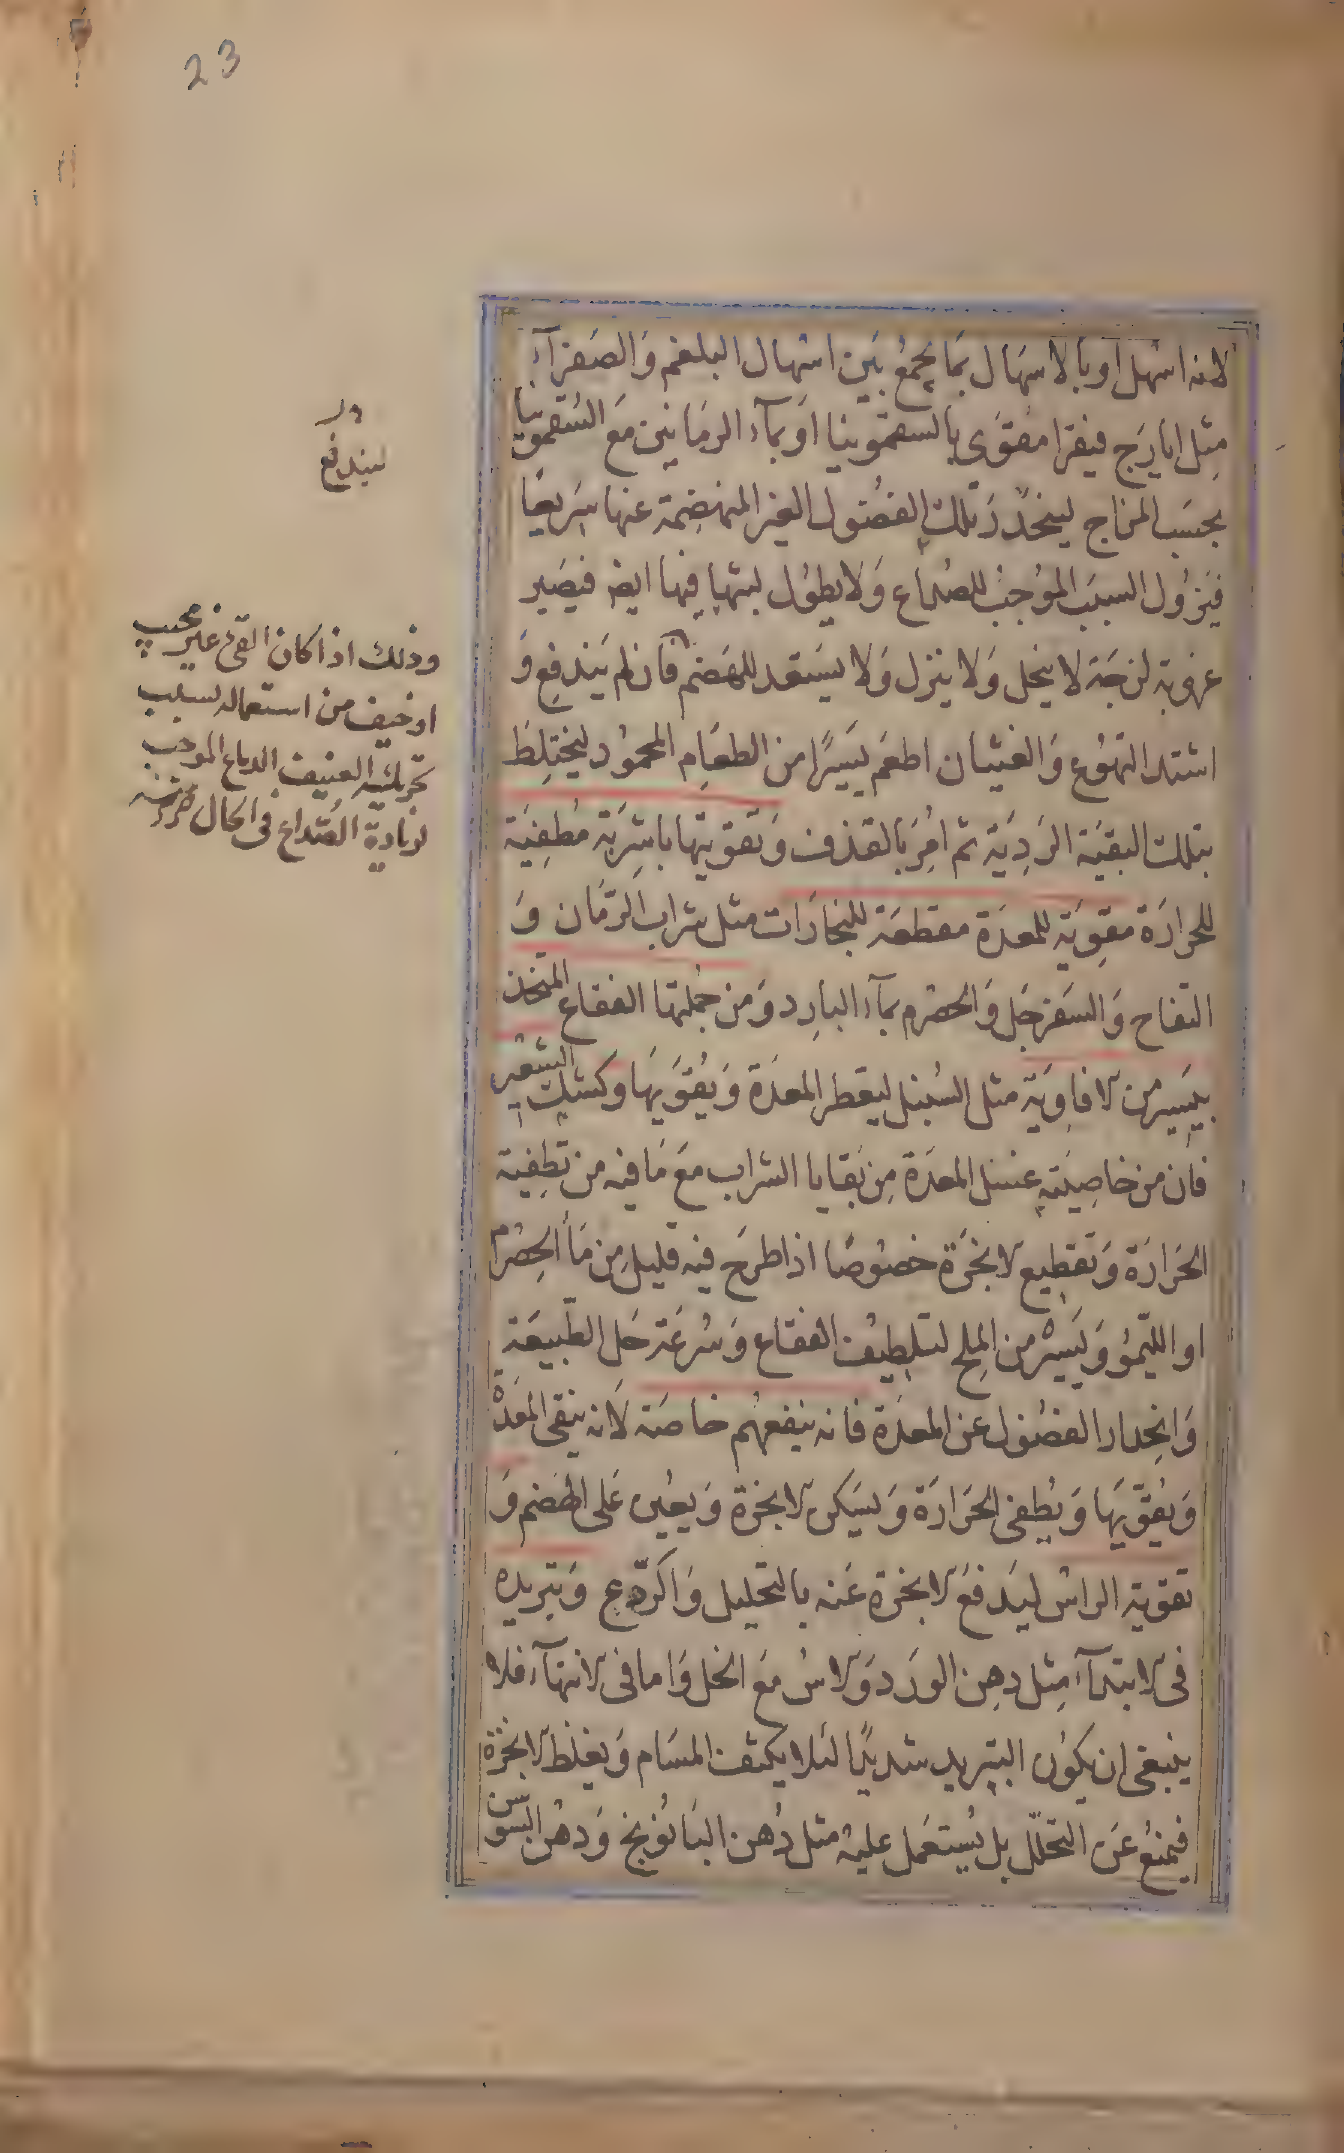 23
لانه اسهل او بالاسهال بمَا يجمعُ بَين اسهال البلغم وَالصَفرآء
مِثل ايارَج فيقرا مقوّى بالسقمونيا اوَ بمآء الرمّانين مَع السَقمونيا
بحسَب المزاج لينحدرَ تلك الفضُول الغير المنهضِمة عنها سَريعًا
فيَزول السبَب الموُجبُ للصُداع وَلا يطوُل لبثها فيها ايضا فيصَير
عفونة لزجَة لا ينحل وَلا ينزل وَلا يستعد للهَضم فان لم يَندفع وَ
اشتد التهوّع وَالغثيان اطعم يَسيرًا من الطعَام المحموُد ليَختلِط
بتلك البقيَة الرَديَة ثم امُر بالقذف وَتقويتها باشربَة مُطفِيَة
للحرارَة مقوِيَة للمعدَة مقطعَة للبخارَات مثل شراب الرّمان وَ
التفاح وَالسفرجَل وَالحصْرم بمآء البارِد وَمن جُملتها الفقاع المتخذ
بيَسير من الافاوِيَة مثل السُنبل ليعطر المعدَة وَيُقوّيهَا وكشك الشعير
فان من خاصِيَته غسل المعدَة مِن بقايا الشراب مَع مَا فيه من تطفِية
الحَرارَة وَتقطيع الابخَرة خصُوصًا اذا طرحَ فيه قليل مِن مَآ الحِصْرم
او الليّمو وَيَسيْر من المِلح لتلطيف الفقاع وَسُرعَة حَل الطّبيعَة
وَانحدار الفضُول عن المعدَة فانه ينفعهُم خاصَة لانه ينقى المعَدة
وَيُقوّيهَا وَيُطفى الحَرارَة وَيسَكن الابخرة وَيعُين عَلى الهضم وَ
تقوية الراس ليَدفعَ الابخرة عَنه بالتحليل وَالرّدع وَتبريده
فى الابتدآء مِثل دهن الورَد وَالاس مَع الخل وَاما فى الانتهآء فلا
ينبغى ان يكوُن التبريد شديدًا لئلا يكثف المسَام وَيغلظ الابخرَة
فيمنعُ عَن التحلّل بل يُستعمل عليْه مثل دُهن البَابُونج وَدهن السَوسن
ليندفع
وذلك اذا كان القئ غير مجيب
او خيف من استعماله لسبب
تحريكه العنيف الدماغ الموجب
لزيادة الصُداع فى الحال